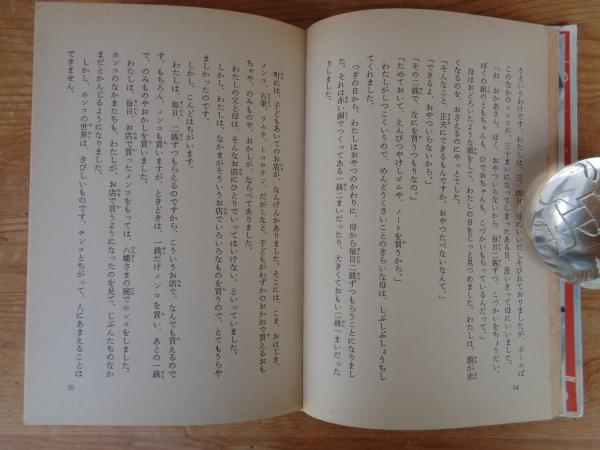 うというわけです。わたしは、三、四日、母にいいだしそびれておりましたが、ボールばこのなかのメンコが、三十まいになってしまったある日、思いきって母にいいました。
「ね、おかあさん。ぼく、おやついらないから、毎日二銭ずつ、こづかいをちょうだい。ぼくの組のともちゃんも、ひでおちゃんも、こづかいもらっているんだって。」
母はおどろいたような顔をして、わたしの目をじっと見つめました。わたしは、顔が赤くなるのを、おさえるのにやっとでした。
「そんなこと、正夫にできるもんですか、おやつたべないなんて。」
「できるよ、おやついらないから。」
「その二銭で、なにを買うつもりなの。」
「ためておいて、えんぴつやけしゴムや、ノートを買うから。」
わたしがしつこくいうので、めんどうくさいことのきらいな母は、しぶしぶしょうちしてくれました。
つぎの日から、わたしはおやつのかわりに、母から毎日二銭ずつもらうことになりました。それは赤い銅でつくってある一銭二まいだったり、大きくておもい二銭一まいだったりしました。
54
町には、子どもあいてのお店が、なんげんかありました。そこには、こま、おはじき、メンコ、石筆、ラムネ、トコロテン、だがしなど、子どもがわずかのおかねで買えるおもちゃや、のみものや、おかしが、ならべてありました。
わたしの父と母は、そんなお店にひとりでいってはいけない、といっていました。
しかし、わたしは、なかまがそういうお店でいろいろなものを買うので、とてもうらやましかったのです。
しかし、こんどはちがいます。
わたしは、毎日、二銭ずつもらえるのですから、こういうお店で、なんでも買えるのです。もちろん、メンコも買いますが、ときどきは、一銭だけメンコを買い、あとの一銭で、のみものやおかしを買いました。
わたしは、毎日、お店で買ったメンコをもっては、八幡さまの庭でホンコをしました。
ホンコのなかまたちも、わたしが、お店で買うようになったのを見て、じぶんたちのなかまだとかんじるようになりました。
しかし、ホンコの世界は、きびしいものです。チンコとちがって、人にあまえることはできません。
55